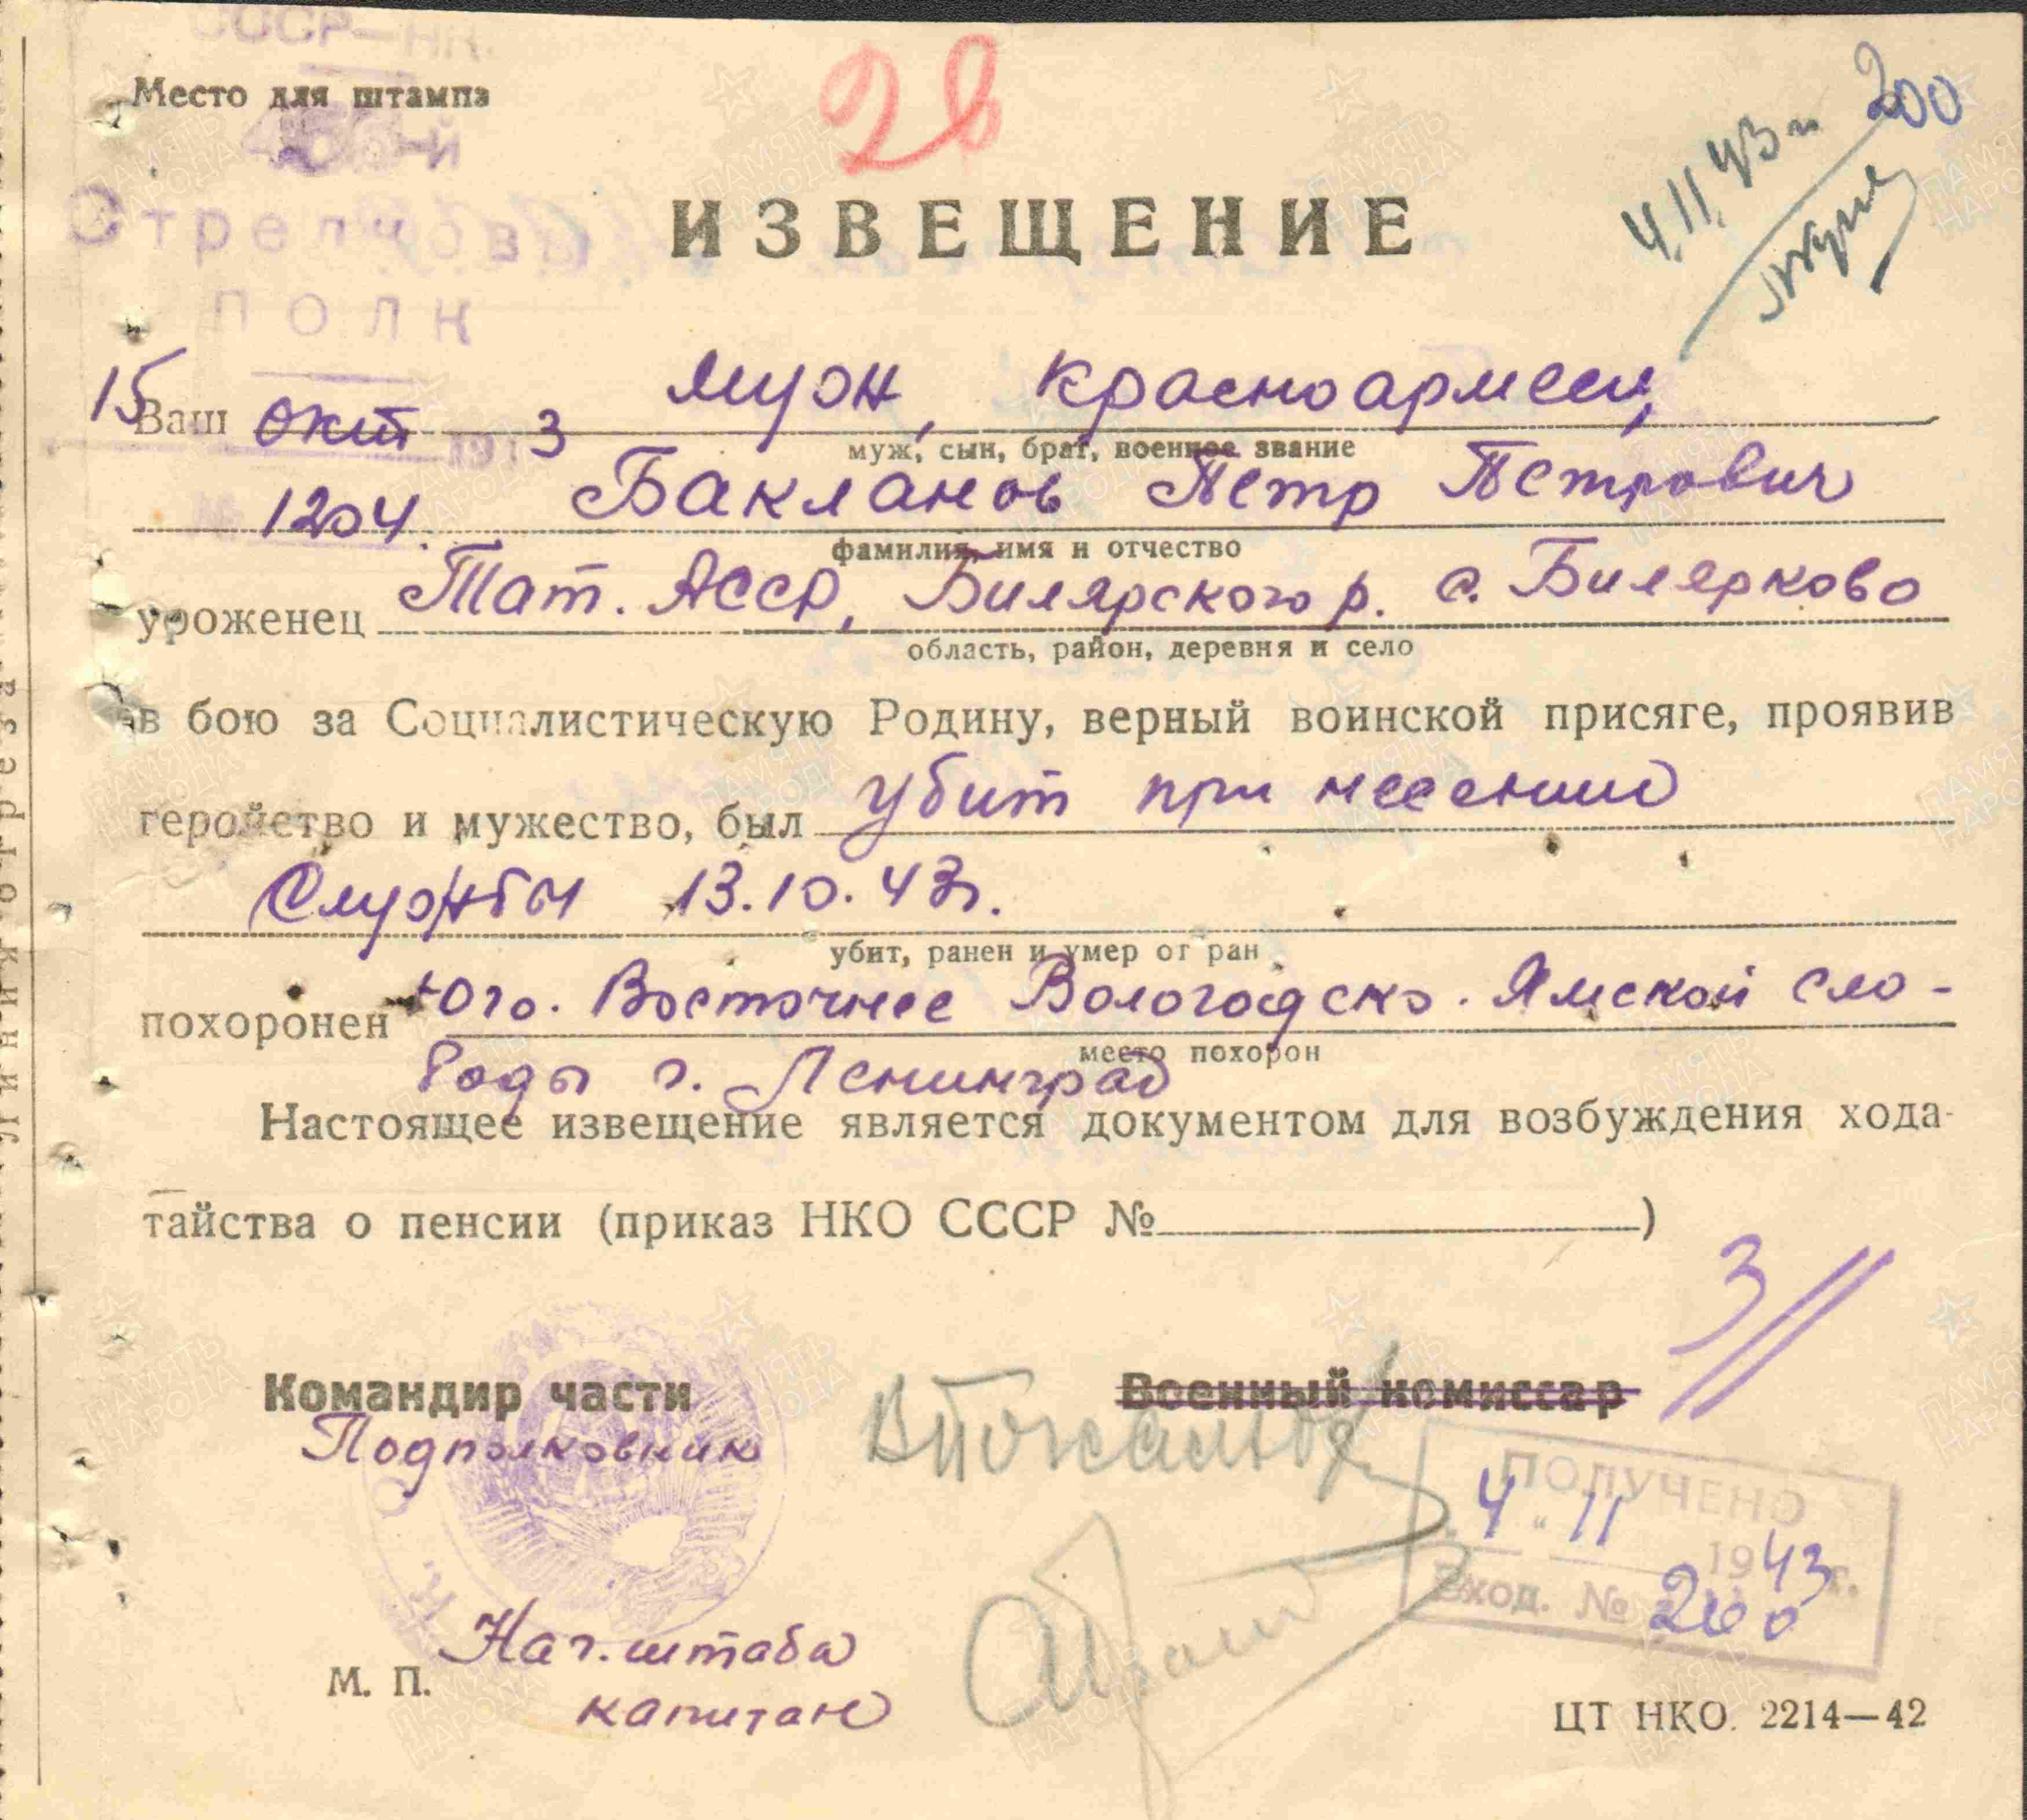 СССР—НК
Место для штампа
28
4.11.43 г
200
ИЗВЕЩЕНИЕ
Стрелковы
ПОЛК
15 окт 1943
Ваш муж, красноармеец,
муж, сын, брат, военное звание
1204 Бакланов Петр Петрович
фамилия, имя и отчество
уроженец Тат. АССР, Билярского р. с. Билярково
область, район, деревня и село
в бою за Социалистическую Родину, верный воинской присяге, проявив
геройство и мужество, был убит при несении
службы 13.10.43г.
убит, ранен и умер от ран
похоронен Юго. Восточнее Вологодско. Ямской сло-
место похорон
боды г. Ленинград
Настоящее извещение является документом для возбуждения хода-
тайства о пенсии (приказ НКО СССР № )
3/11
Командир части
Военный комиссар
Подполковник
ПОЛУЧЕНО
4 " 11 1943 г.
Вход. № 200
Нач. штаба
М. П.
капитан
ЦТ НКО. 2214—42
Линия отреза